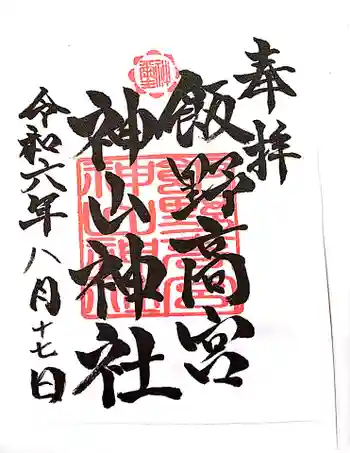 奉拝
飯野高宮
神山神社
令和六年八月十七日